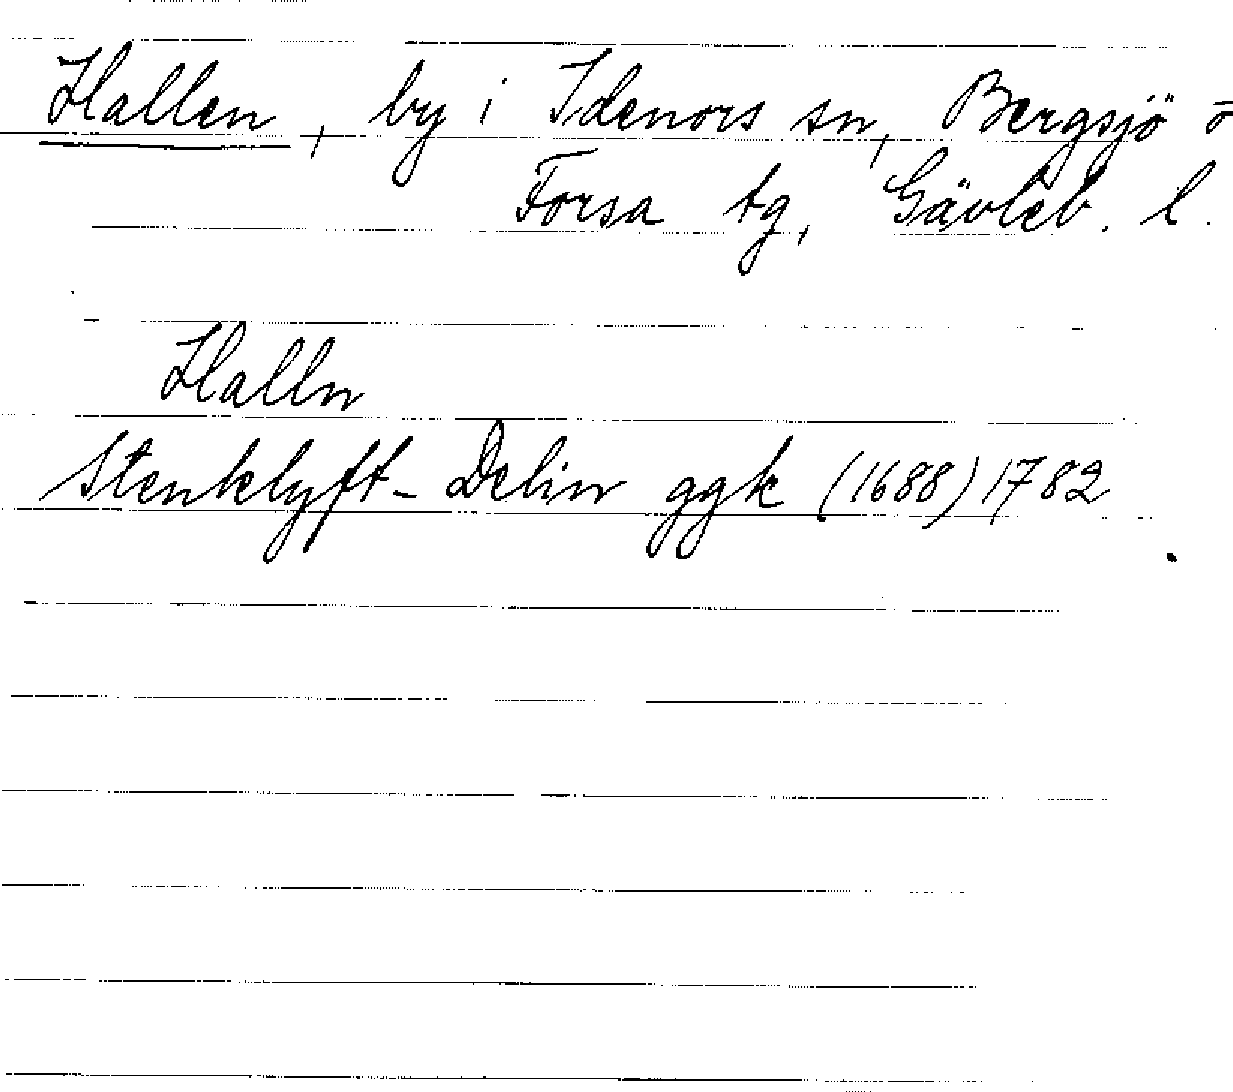 Hallen, by i Idenors sn, Bergsjö o
Forsa tg, Gävleb. l.
Halln
Stenklyft- Delin ggk (1688) 1782